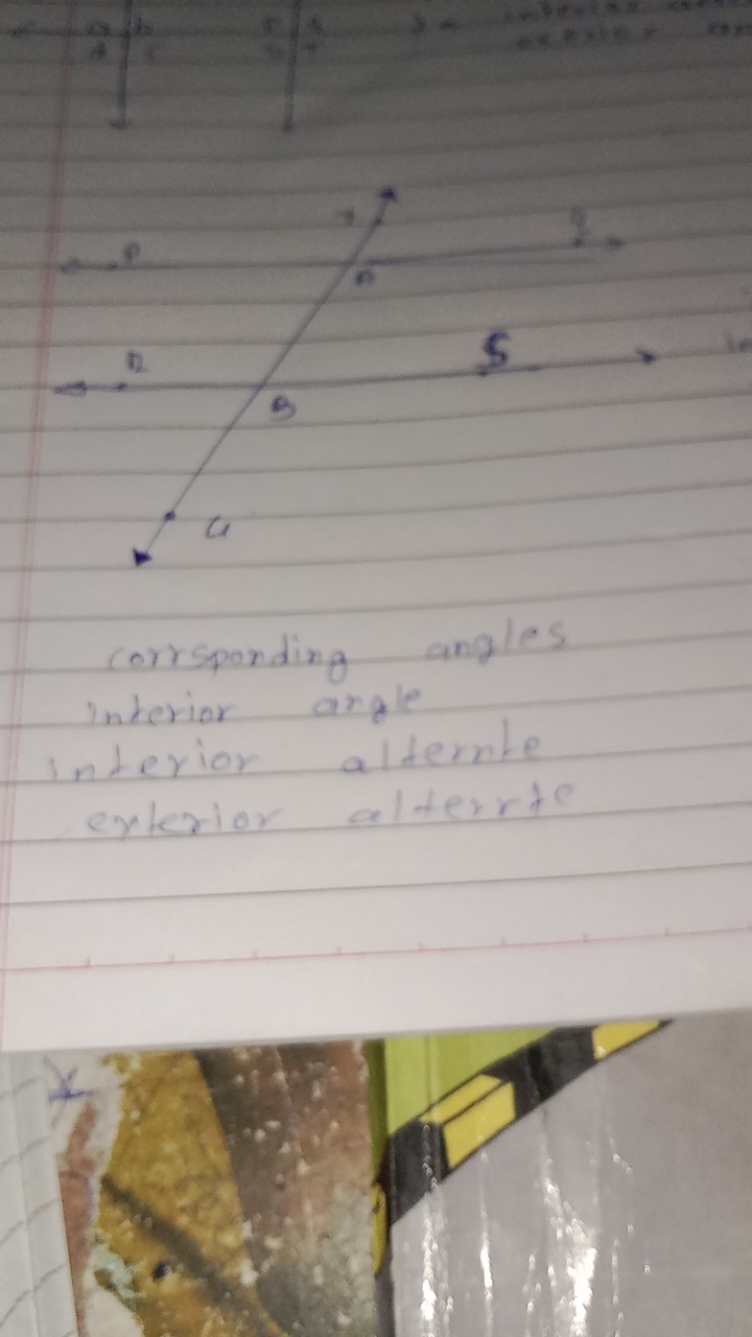 a b
d c
interior
P
A
R
S
B
corrsponding angles
interior angle
interior alternte
exterior alterrte